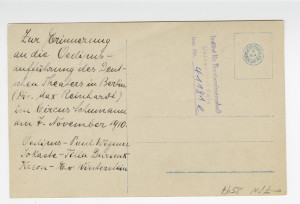 Zur Erinnerung
an die Oedipus-
aufführung des Deut-
schen Theaters in Berlin
(Dir. Max Reinhardt)
im Circus Schumann
am 7. November 1910.
Oedipus - Paul Wegener
Jokaste - Tilla Durieux
Kreon - Ed. v. Winterstein